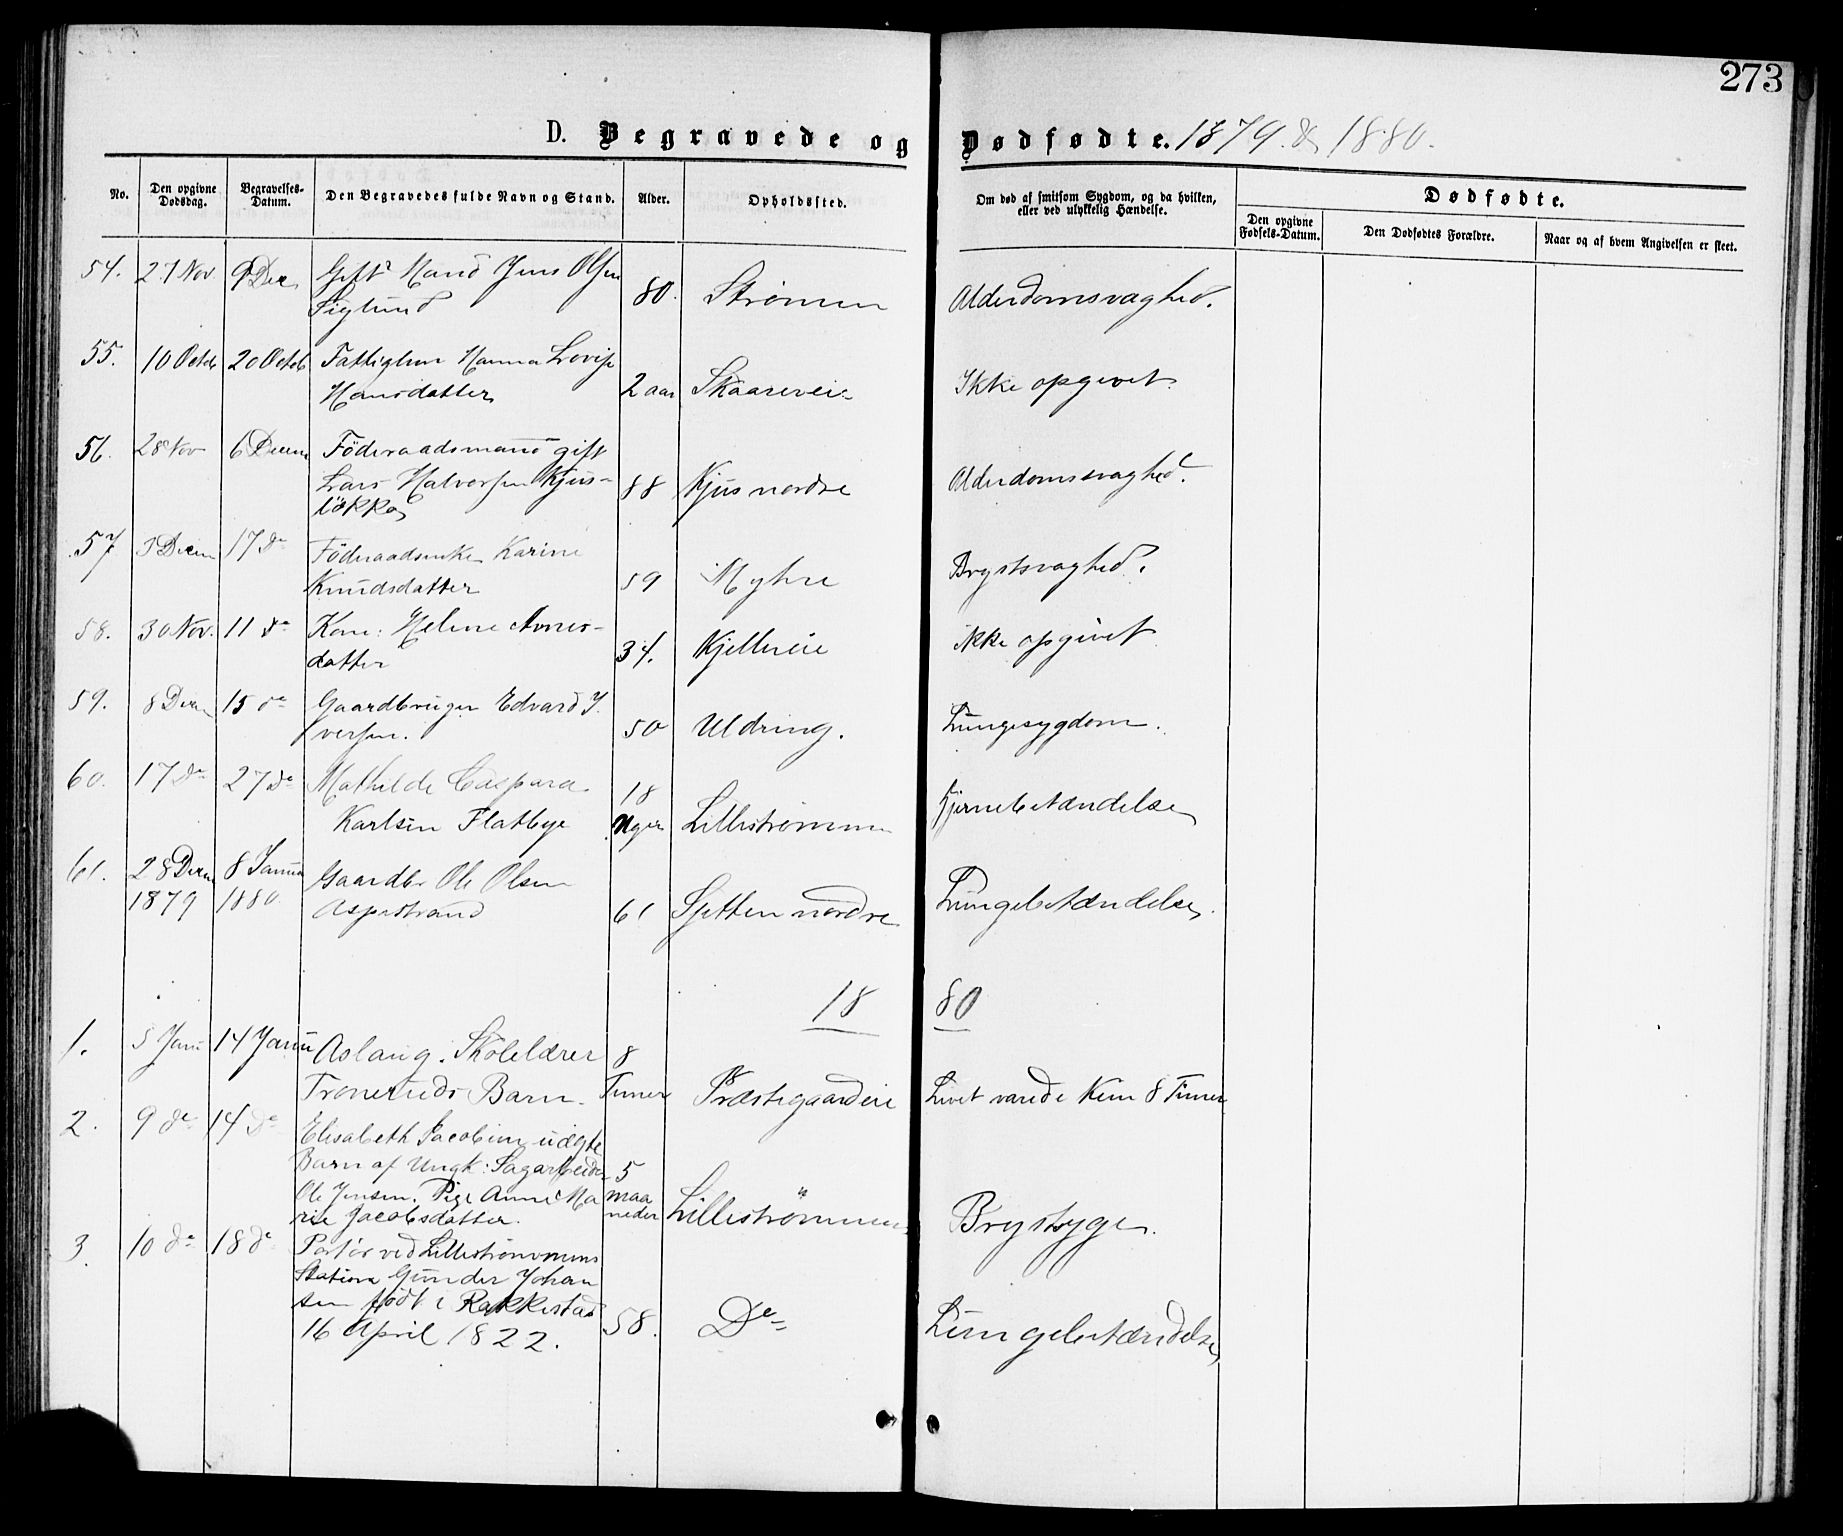 273
D. Begravede og Dødfødte. 1879 & 1880.
No.
Den opgivne Dødsdag.
Begravelses-Datum.
Den Begravedes fulde Navn og Stand.
Alder.
Opholdssted.
Om død af smitsom Sygdom, og da hvilken, eller ved ulykkelig Hændelse.
Dødfødte.
Den opgivne Fødsels-Datum.
Den Dødfødtes Forældre.
Naar og af hvem Angivelsen er skeet.
54. 27 Nov. 9 Dec Gift Mand Jens Olsen
80. Strømen Alderdomsvaghed.
55. 10 Octob 20 Octob Fattiglem Hanna Lovise
Hansdatter 2 aar Skaareveie Ikke opgivet.
56. 28 Nov 6 Decem Föderaadsmand gift
Lars Halvorsen Kjus-
løkke 88 Kjus nordre Alderdomssvaghed.
57 3 Decem 17 de Föderaadsenke Karine
Knudsdatter 59 Myhre Brystsvaghed.
58. 30 Nov. 11 de Kone: Helene Arnes-
datter 34. Kjellereie ikke opgivet
59. 8 Decem 15 de Gaardbruger Edvard I-
versen. 50 Uldring. Lungesygdom.
60. 17 de 27 de Mathilde Caspara
Karlsen Flatbye 18 Uger Lillestrømmen Hjernebetændelse
61. 28 Decem 8 Janua Gaardbr Ole Olsen
1879 1880. Aspestrand 61 Sjetten nordre Lungebetændelse.
18 80
1. 5 Janu 14 Janu Aslaug. Skolelærer 8
Troneruds Barn. Timer Præstegaardeie Livet varede kun 8 Timer
2. 9 de 14 de Elisabeth Jacobine uægte
Barn af Ungk: Sagarbeider 5
Ole Jensen. Pige Anne Ma maa
rie Jacobsdatter. neder Lillestrømmen Brystsyge.
3. 10 de 18 de Portør ved Lillestrømmens
Station Gunder Johan
sen født i Rakkestad
16 April 1822. 58. De Lungebetændelse